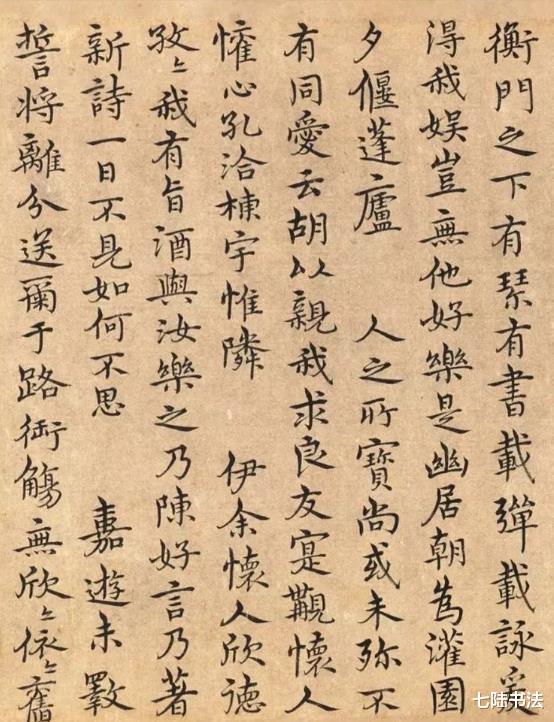 衡門之下有琴有書載彈載詠爰
得我娛豈無他好樂是幽居朝為灌園
夕偃蓬廬 人之所寶尚或未珎不
有同愛云胡以親我求良友寔覯懷人
懽心孔洽棟宇惟隣 伊余懷人欣德
孜〻我有旨酒與汝樂之乃陳好言乃著
新詩一日不見如何不思 嘉遊未斁
誓將離分送爾于路銜觴無欣〻依〻舊
七陆书法